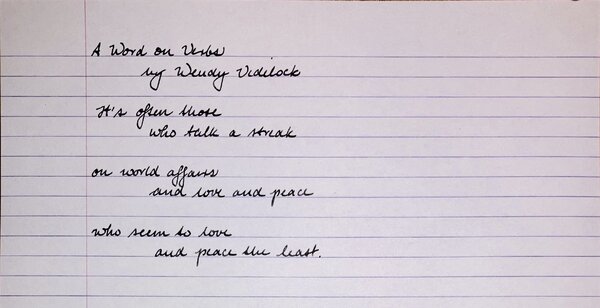 A Word on Verbs
by Wendy Videlock
It's often those
who talk a streak
on world affairs
and love and peace
who seem to love
and peace the least.